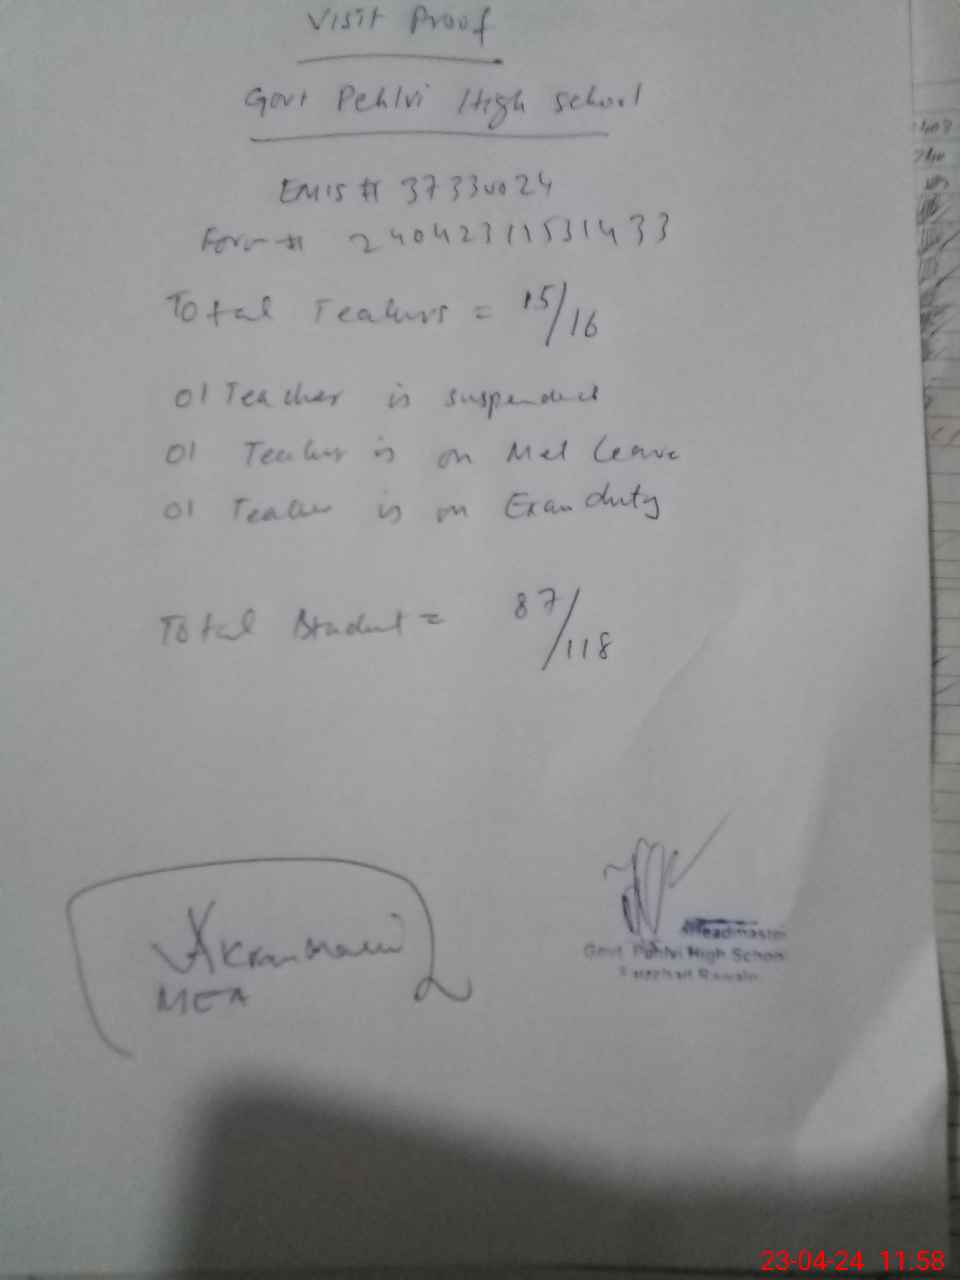 Visit Proof
Govt Pehlvi High School
EMIS # 37330024
Form # 24042311531433
Total Teachers = 15/16
01 Teacher is suspended
01 Teacher is on Met Leave
01 Teacher is on Exam duty
Total Student = 87/118
MEA
Headmaster
Govt. Pehlvi High School
23-04-24 11.58